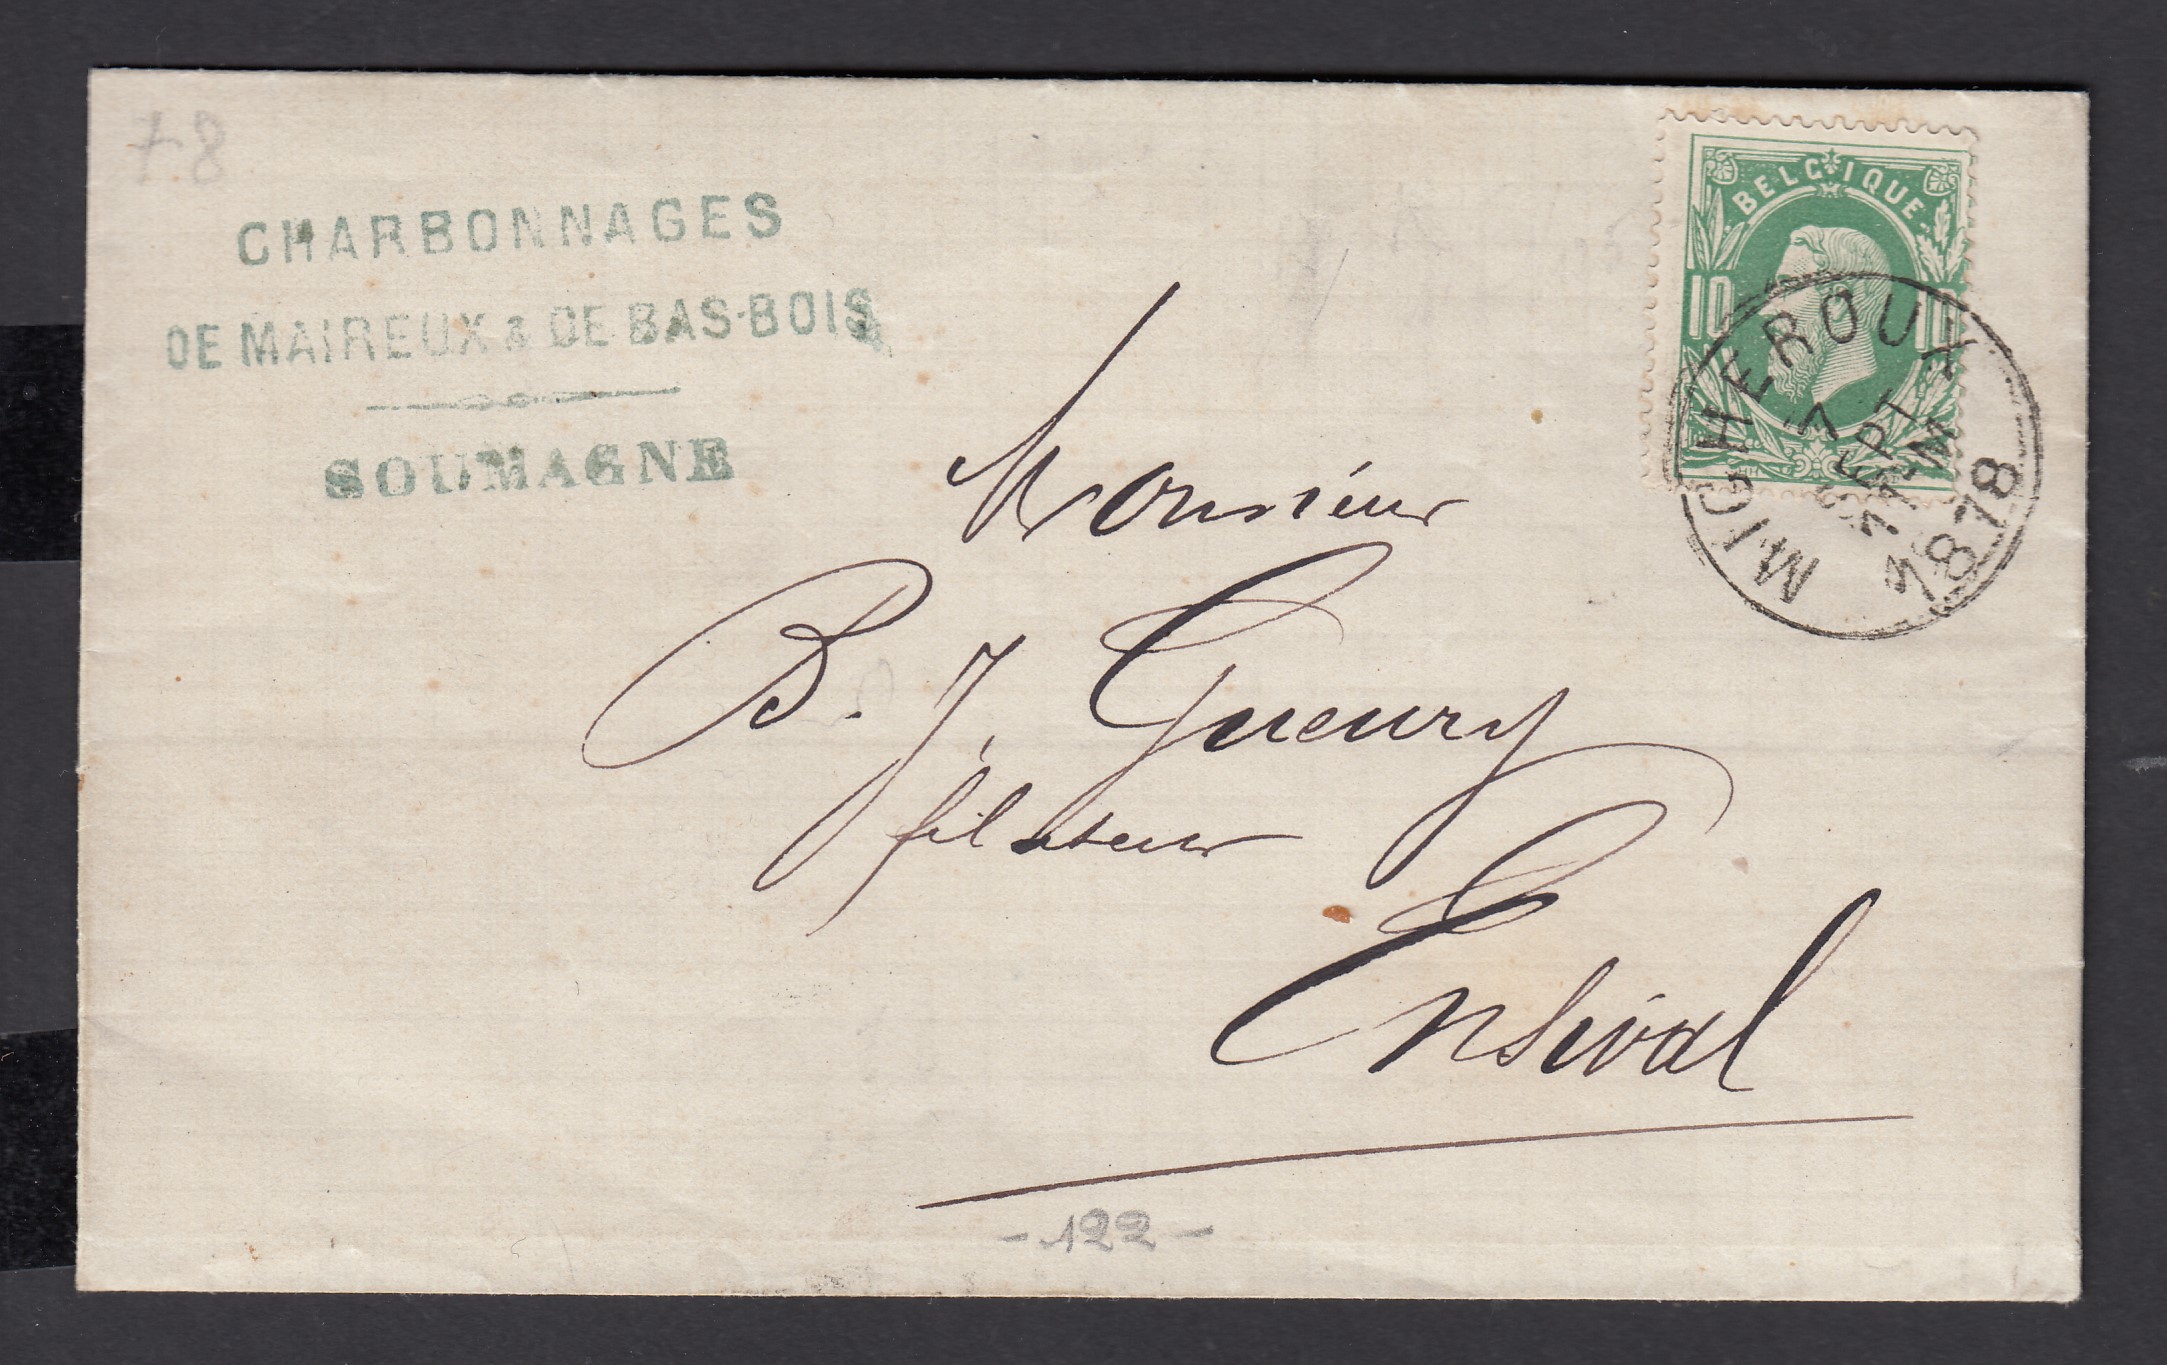 78
CHARBONNAGES
DE MAIREUX & DE BAS-BOIS
SOUMAGNE
BELGIQUE
10 10
MICHEROUX
7 SEPT
7-M
1878
Monsieur
B. J. Gueury
filateur
Ensival
- 122 -